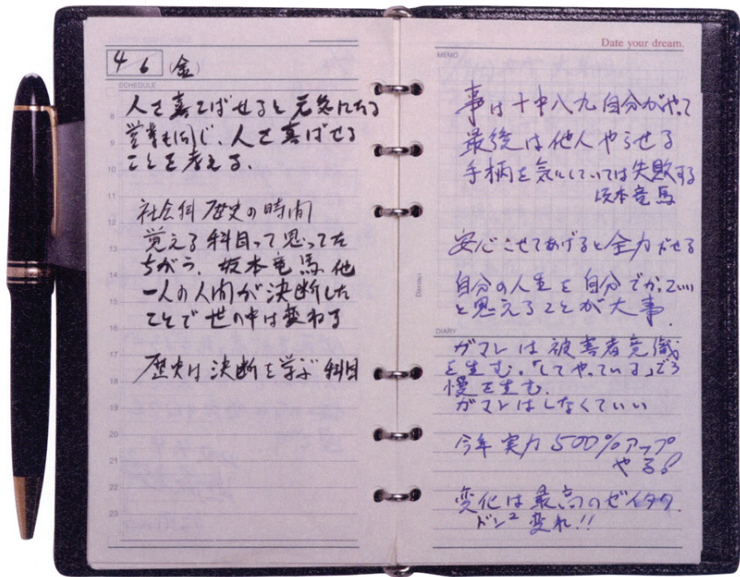 4 6 (金)
SCHEDULE
人を喜ばせると元気になる
営業も同じ、人を喜ばせる
ことを考える、
社会科 歴史の時間
覚える科目って思ってた
ちがう、坂本竜馬他
一人の人間が決断した
ことで世の中は変わる
歴史は決断を学ぶ科目
8
9
10
11
12
13
14
15
16
17
18
19
20
21
22
23
Date your dream.
MEMO
事は十中八九自分がやって
最後は他人やらせる
手柄を気にしていては失敗する
坂本竜馬
安心させてあげると全力だせる
自分の人生を自分でかっこいい
と思えることが大事.
DIARY
ガマンは被害者意識
を生む。「してやっている」でう
慢を生む.
ガマンはしなくていい
今年実力500%アップ
やる!
変化は最高のゼイタク.
ドン2変れ!!